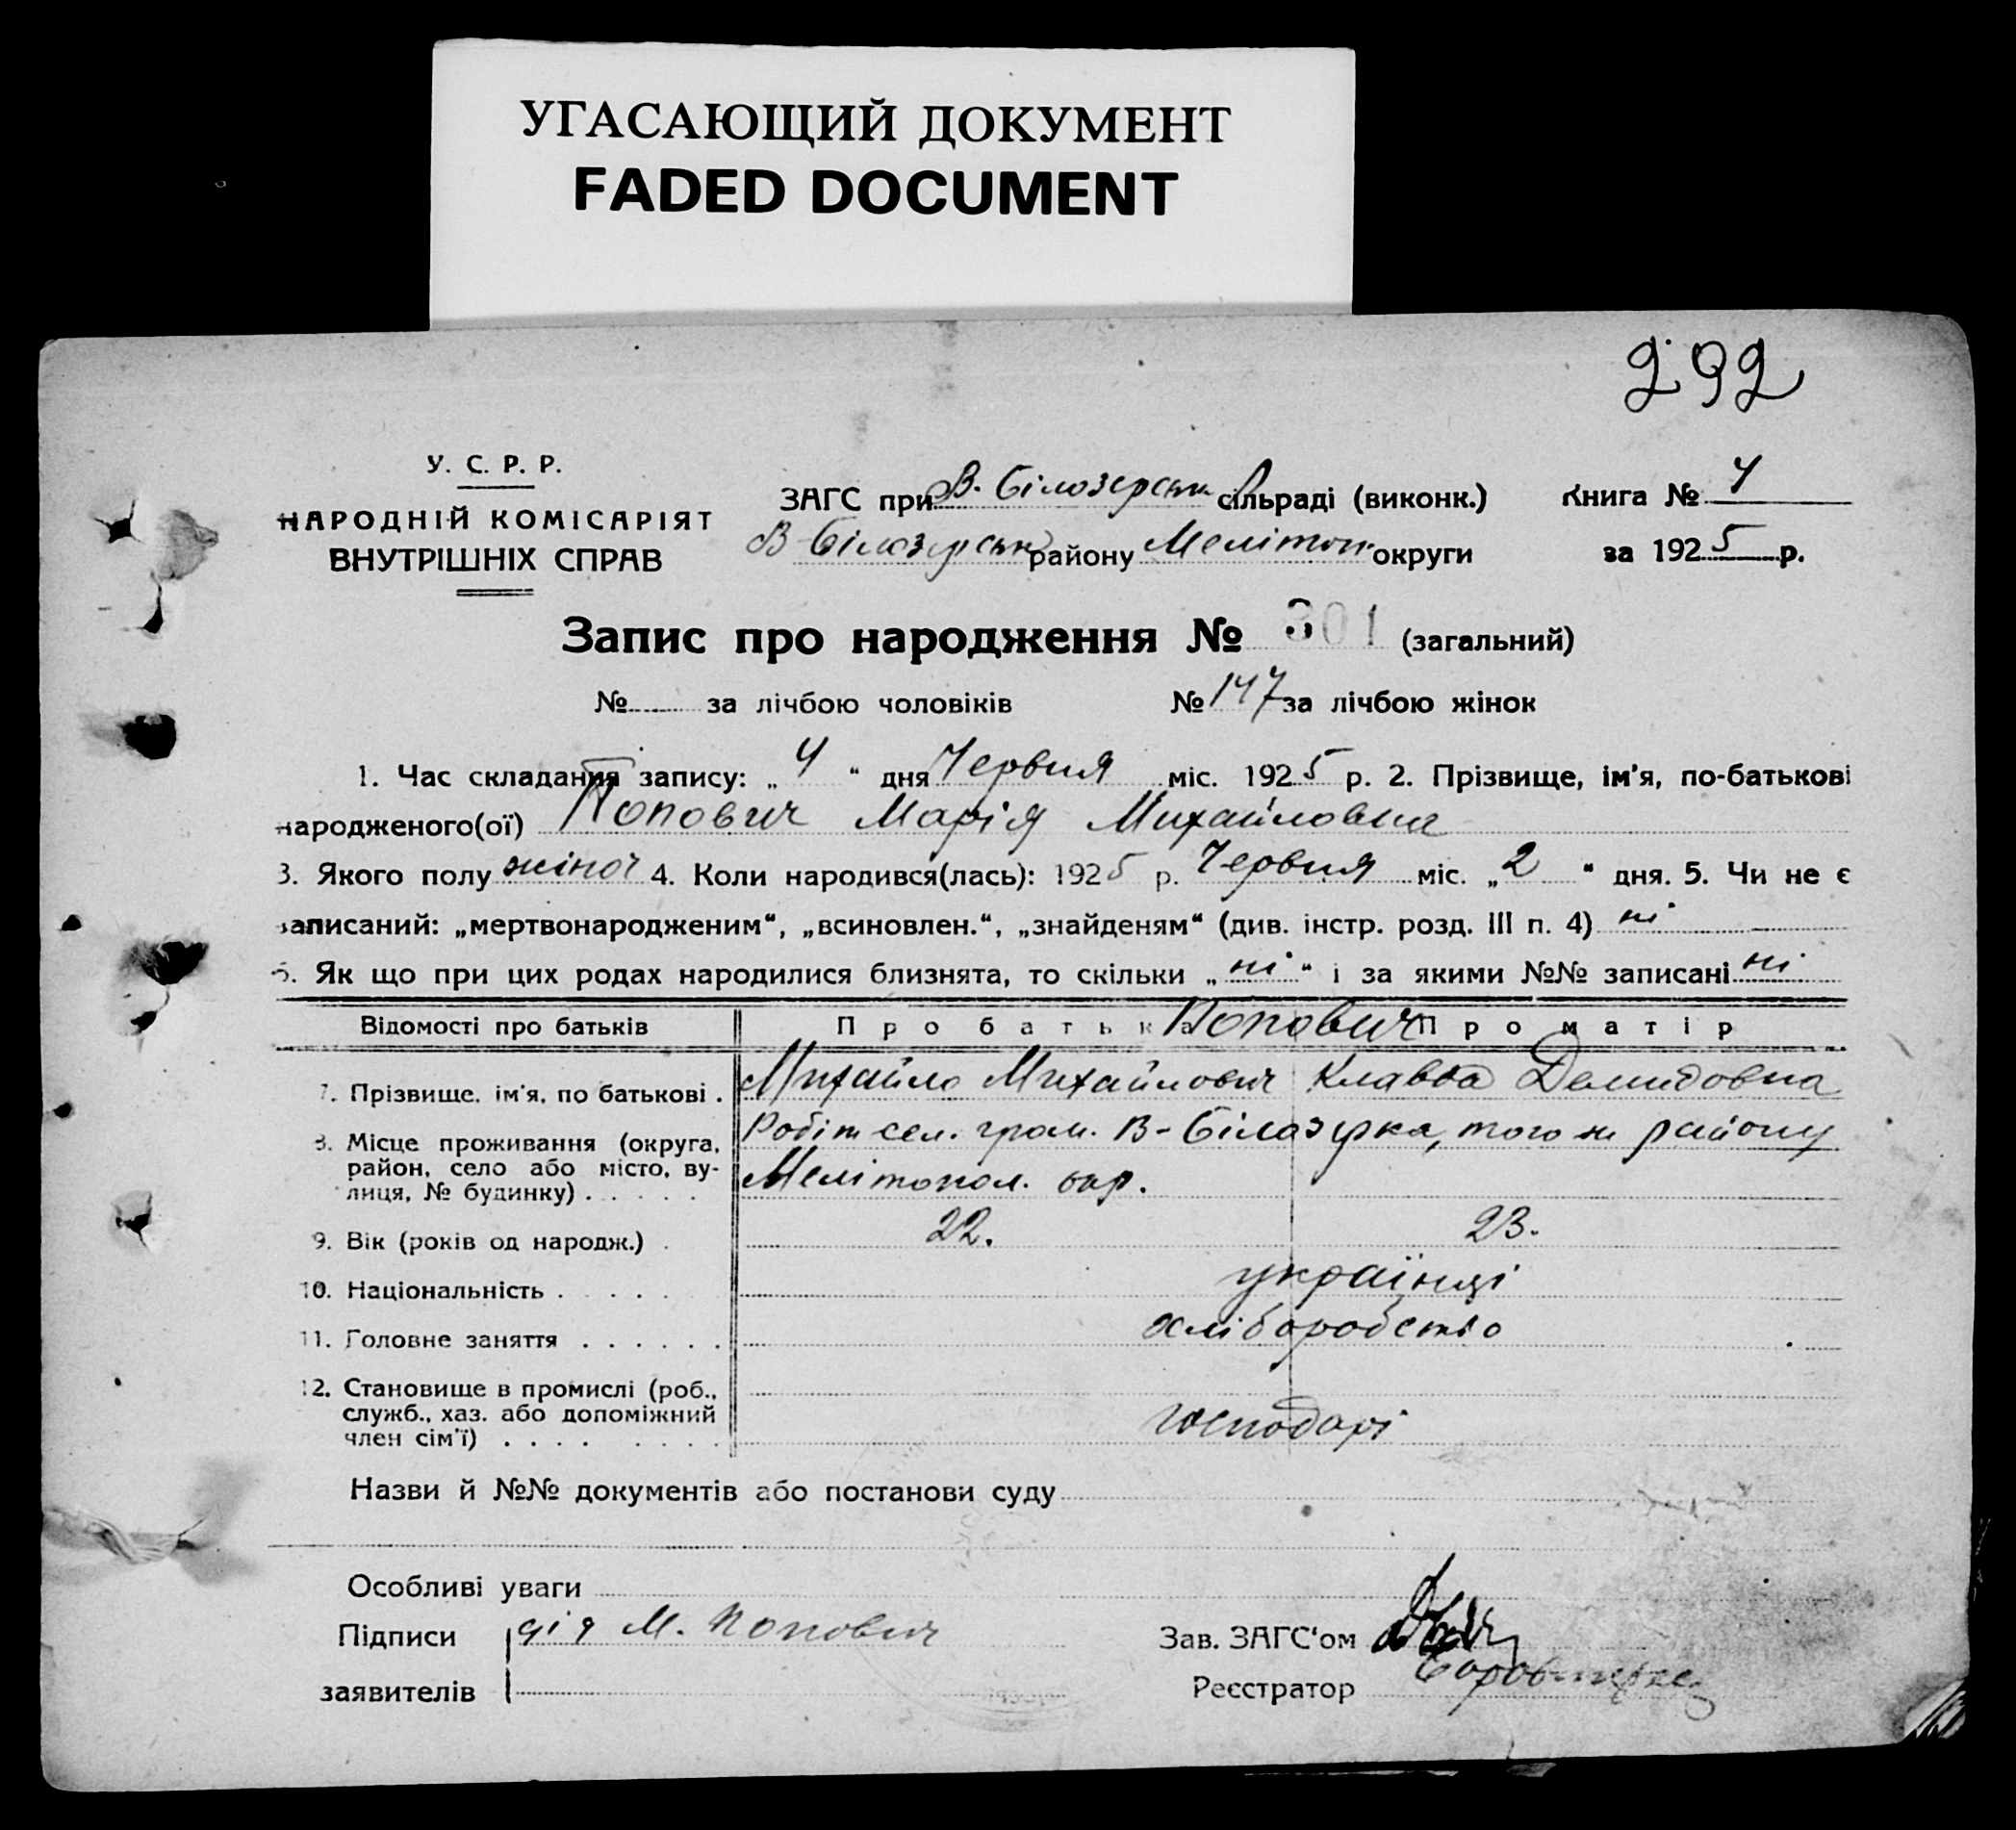 УГАСАЮЩИЙ ДОКУМЕНТ
FADED DOCUMENT
292
У. С. Р. Р.
НАРОДНІЙ КОМІСАРІЯТ
ВНУТРІШНІХ СПРАВ
ЗАГС при В. Білозерськ сільраді (виконк.)
В Білозерськ району Мелітоп. округи
Книга № 4
за 1925 р.
Запис про народження № 301 (загальний)
№ за лічбою чоловіків № 147 за лічбою жінок
1. Час складання запису: „4“ дня Червня міс. 1925 р. 2. Прізвище, ім'я, по-батькові
народженого(ої) Попович Марія Михайловна
3. Якого полу жіноч 4. Коли народився(лась): 1925 р. Червня міс. „2“ дня. 5. Чи не є
записаний: „мертвонародженим“, „всиновлен.“, „знайденям“ (див. інстр. розд. III п. 4) ні
6. Як що при цих родах народилися близнята, то скільки „ні“ і за якими №№ записані ні
Відомості про батьків Про батька Попович Про матір
7. Прізвище, ім'я, по батькові . Михайло Михайлович Клавда Демидовна
8. Місце проживання (округа, район, село або місто, вулиця, № будинку) . . . . . Робіт сел. гром. В-Білозерка, того ж району
Мелітопол. окр.
9. Вік (років од народж.) . 22. 23.
10. Національність . . . . . українці
11. Головне заняття . . . . . . хліборобство
12. Становище в промислі (роб.,
служб., хаз. або допоміжний
член сім'ї) . . . . . . . . господарі
Назви й №№ документів або постанови суду
Особливі уваги
Підписи М. Попович
заявителів
Зав. ЗАГС'ом
Реєстратор